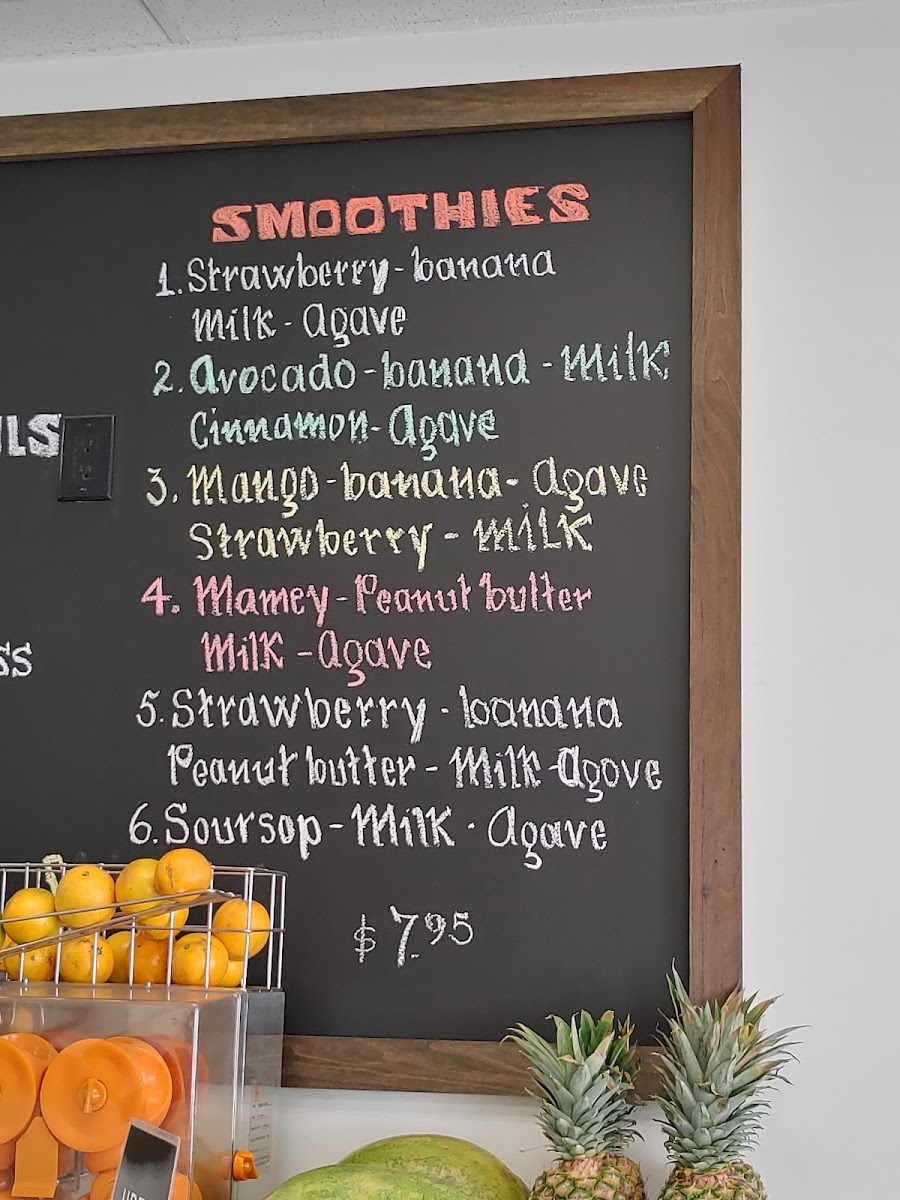 SMOOTHIES
1. Strawberry - banana
Milk - Agave
2. Avocado - banana - Milk
Cinnamon - Agave
3. Mango - banana - Agave
Strawberry - MiLK
4. Mamey - Peanut butter
Milk - Agave
5. Strawberry - banana
Peanut butter - Milk - Agove
6. Soursop - Milk - Agave
$ 7.95